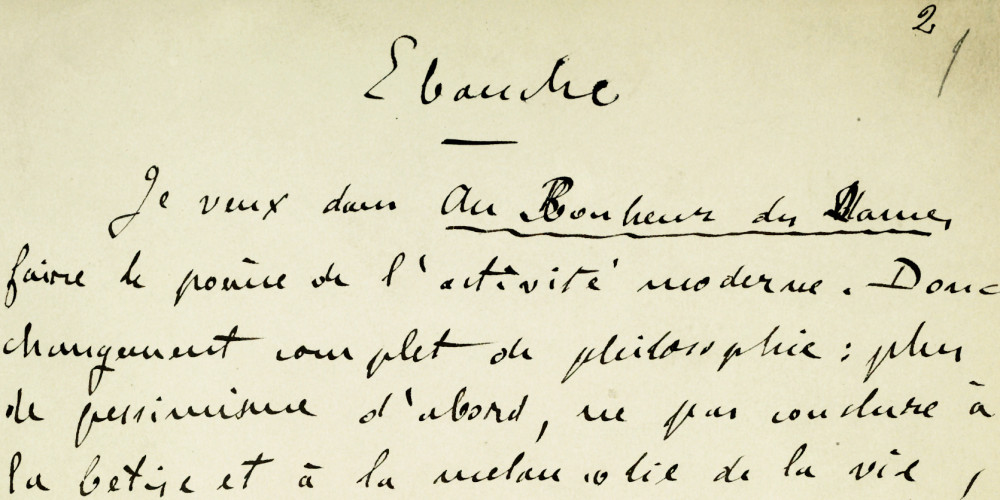 2
Ebauche
Je veux dans Au Bonheur des Dames,
faire le poème de l'activité moderne. Donc
changement complet de philosophie : plus
de pessimisme d'abord, ne pas conclure à
la bêtise et à la mélancolie de la vie,